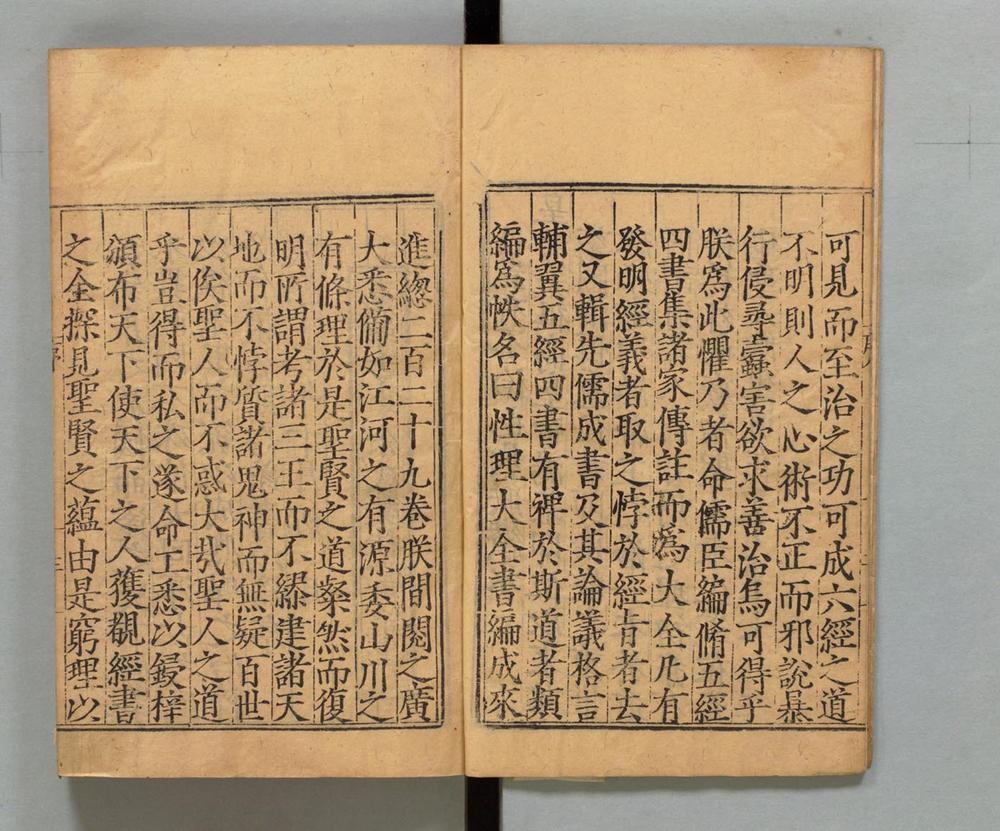 可見而至治之功可成六經之道
不明則人之心術不正而邪說暴
行侵尋蠹害欲求善治烏可得乎
朕爲此懼乃者命儒臣編脩五經
四書集諸家傳註而爲大全凡有
發明經義者取之悖於經旨者去
之又輯先儒成書及其論議格言
輔翼五經四書有裨於斯道者類
編爲帙名曰性理大全書編成來
進緫二百二十九卷朕間閱之廣
大悉備如江河之有源委山川之
有條理於是聖賢之道粲然而復
明所謂考諸三王而不繆建諸天
地而不悖質諸鬼神而無疑百世
以俟聖人而不惑大㢤聖人之道
乎豈得而私之遂命工悉以鋟梓
頒布天下使天下之人獲覩經書
之全探見聖賢之蘊由是窮理以